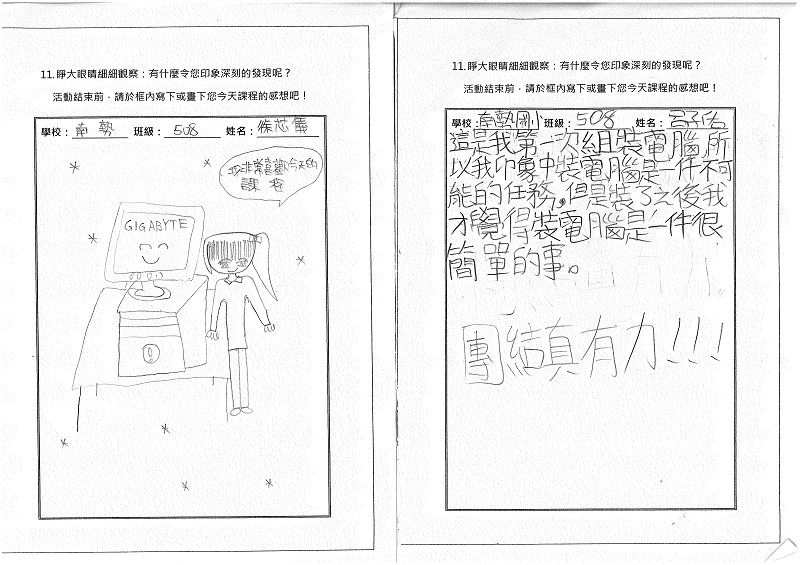 11.睜大眼睛細細觀察：有什麼令您印象深刻的發現呢？
活動結束前，請於框內寫下或畫下您今天課程的感想吧！
學校：南勢 班級：508 姓名：徐芯儀
我非常喜歡今天的
課程
GIGABYTE
11.睜大眼睛細細觀察：有什麼令您印象深刻的發現呢？
活動結束前，請於框內寫下或畫下您今天課程的感想吧！
學校：南勢國小 班級：508 姓名：呂子佑
這是我第一次組裝電腦,所
以我印象中裝電腦是一件不可
能的任務。但是裝了之後我
才覺得裝電腦是一件很
簡單的事。
團結真有力!!!